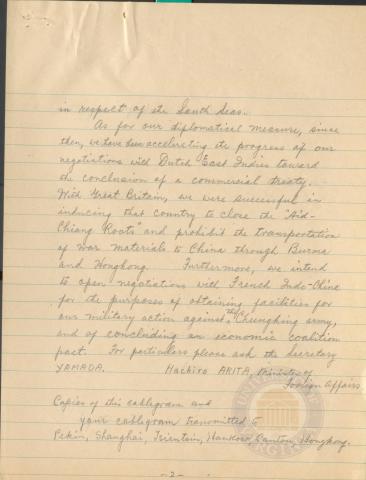 in respect of the South Seas.
As for our diplomatical measure, since
then, we have been accelerating the progress of our
negotiations with Dutch East Indies toward
the conclusion of a commercial treaty.
With Great Britain, we were successful in
inducing that country to close the "Aid-
Chiang Roots" and prohibit the transportation
of war materials to China through Burma
and Hongkong. Furthermore, we intend
to open negotiations with French Indo-China
for the purposes of obtaining facilities for
our military action against the Chungking army,
and of concluding an economic coalition
pact. For particulars please ask the Secretary
YAMADA. Hachiro ARITA, Minister of
Foreign Affairs
Copies of this cablegram and
your cablegram transmitted to
Pekin, Shanghai, Tientsin, Hankow, Canton, Hongkong.
-2-